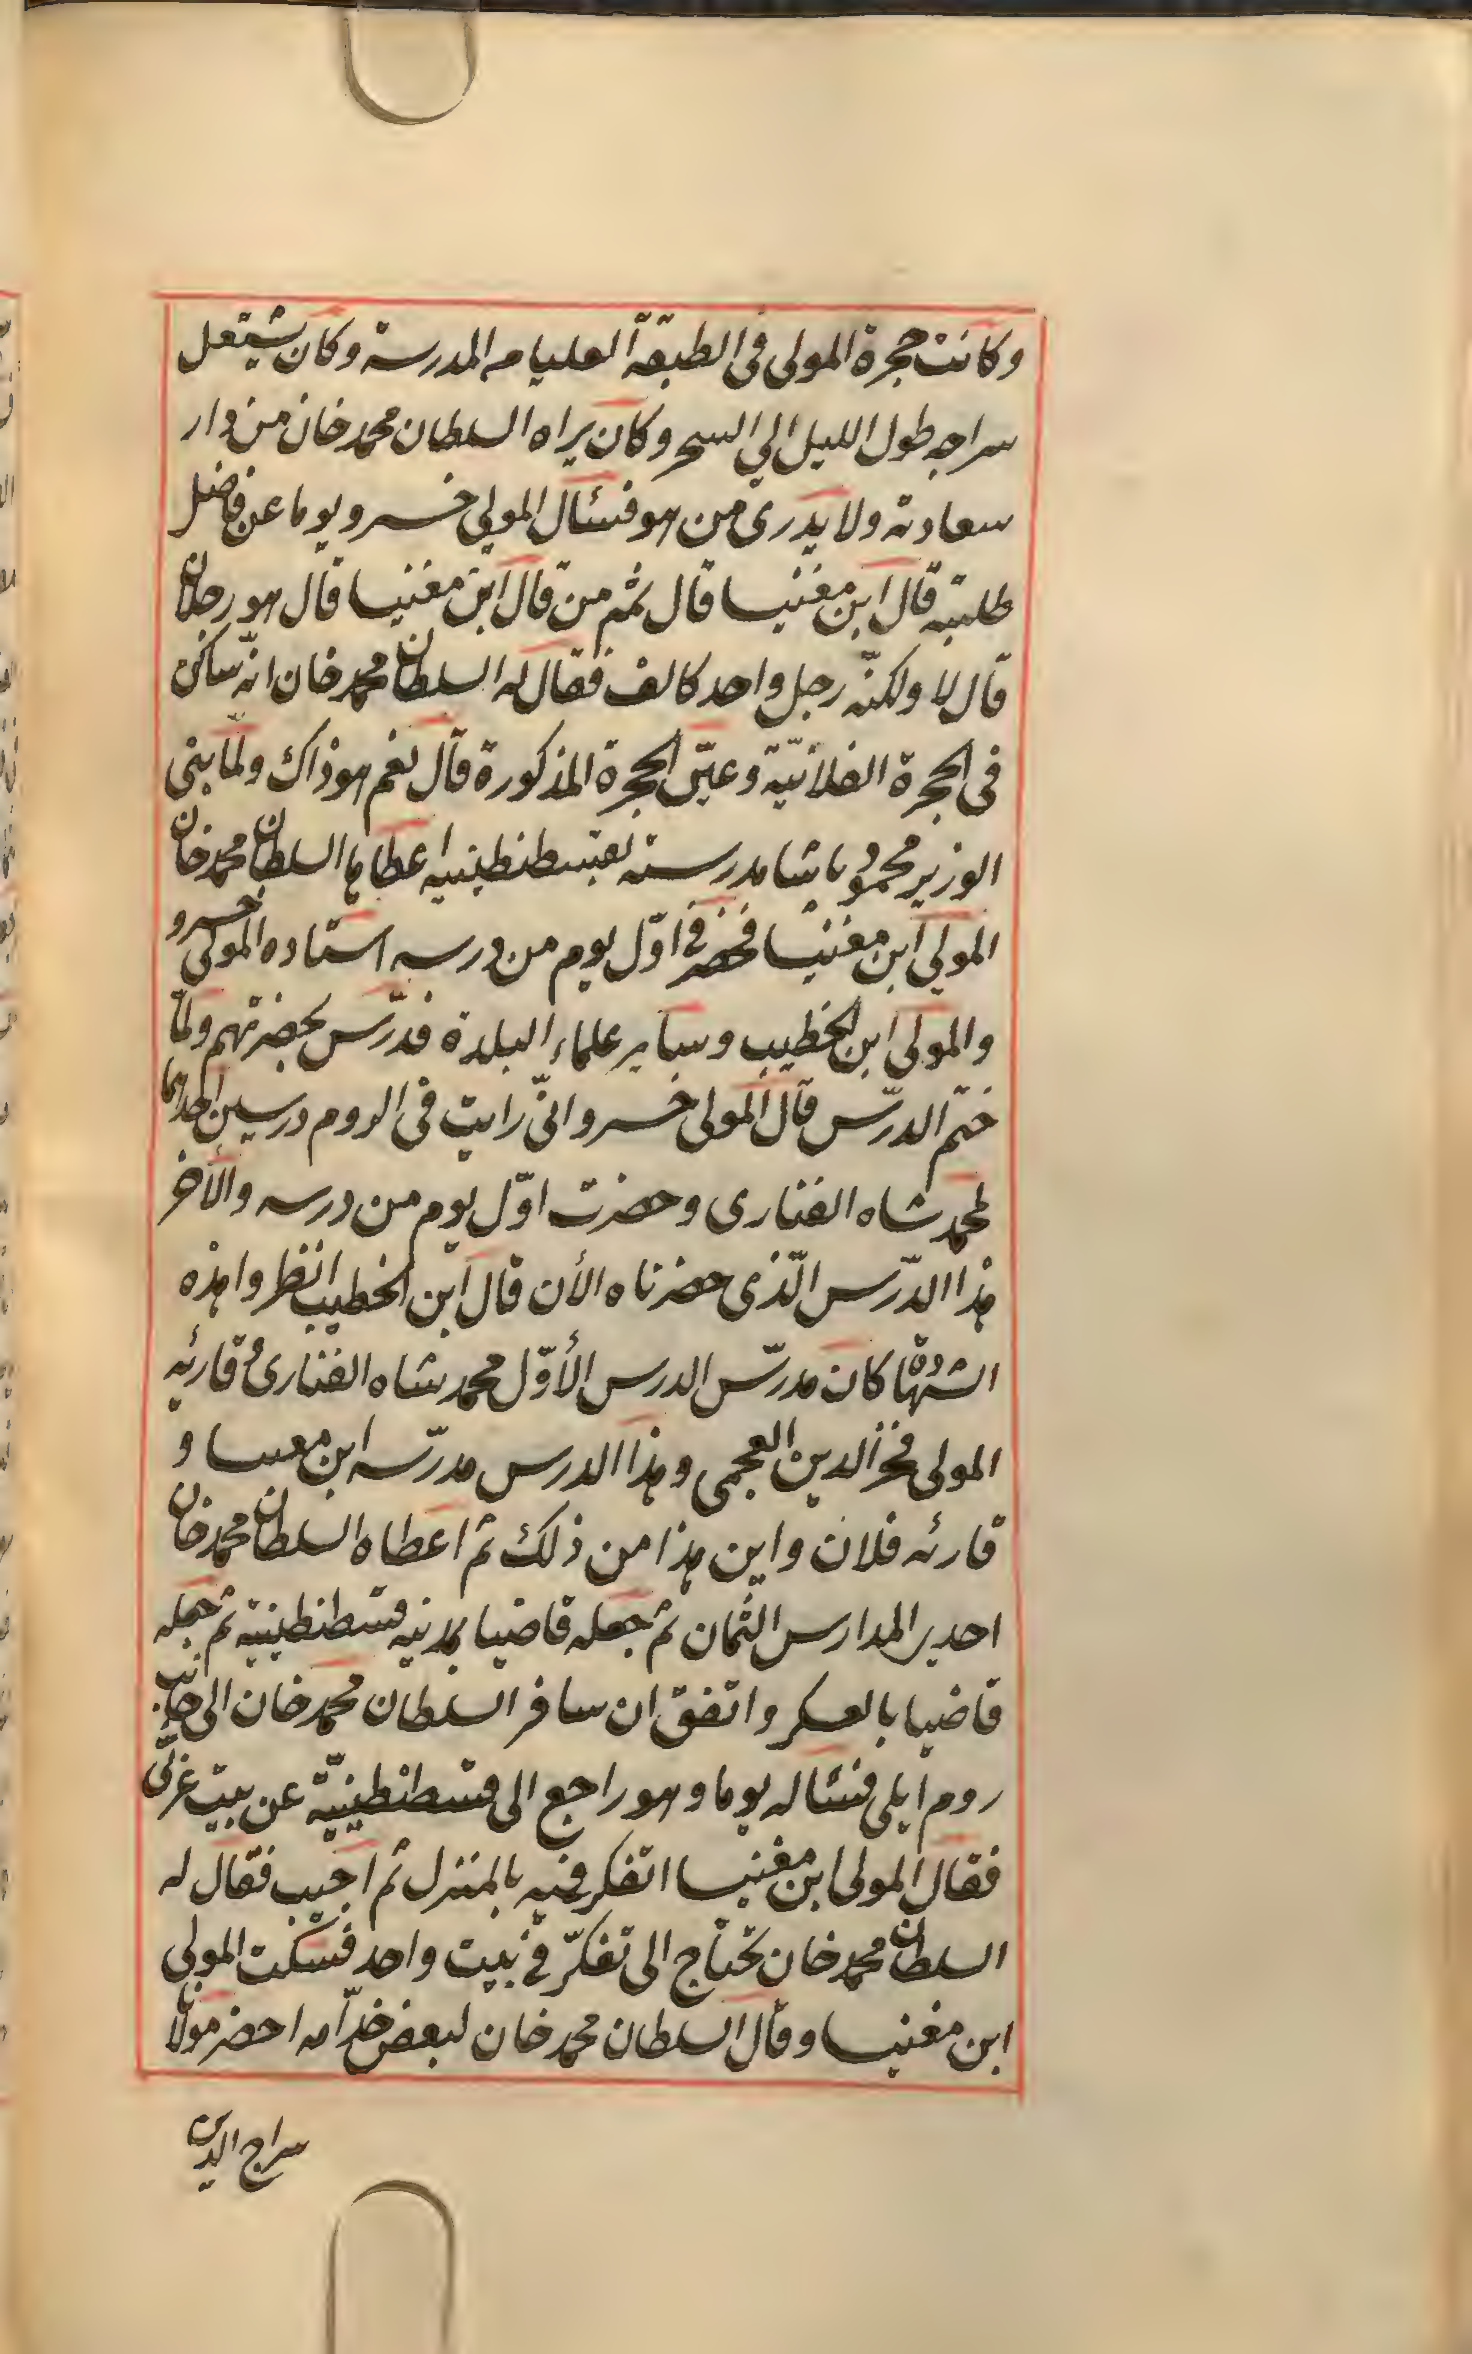 وكانت حجرة المولى فى الطبقة العليا من المدرسة وكان يشتعل
سراجه طول الليل الي السحر وكان يراه السلطان محمد خان من دار
سعادته ولا يدرى من هو فسئال المولي خسرو يوما عن فاضل
طلبته قال ابن مغنيسا قال ثم من قال ابن مغنيسا قال هو رجلان
قال لا ولكنّه رجل واحد كالف فقال له السلطان محمد خان انّه ساكن
فى الحجرة الفلانيّة وعيّن الحجرة المذكورة قال نعم هو ذاك ولمّا بنى
الوزير محمود پاشا مدرسته بقسطنطينيه اعطاها السلطان محمد خان
المولي ابن مغنيسا فحضر فى اوّل يوم من درسه استاده المولى خسرو
والمولى ابن الخطيب وساير علماء البلدة فدرّس بحضرتهم ولمّا
ختم الدرّس قال المولى خسرو انّى رايت فى الروم درسين احدهما
لمحمد شاه الفنارى وحضرت اوّل يوم من درسه والأخر
هذا الدّرس الّذى حضرناه الأن قال ابن الخطيب انظروا هذه
الشهادة كان مدرّس الدرس الأوّل محمد شاه الفنارى و قارئه
المولى فخر الدين العجمى وهذا الدرس مدرّسه ابن مغنيسا و
قارئه فلان واين هذا من ذلك ثم اعطاه السلطان محمد خان
احدي المدارس الثمان ثم جعله قاضيا بمدينه قسطنطينية ثم جعله
قاضيا بالعسكر واتفق ان سافر السلطان محمد خان الى جانب
روم ايلى فسئاله يوما وهو راجع الى قسطنطينيّة عن بيت عربّى
فقال المولى ابن مغنيسا اتفكر فيه بالمنزل ثم اجيب فقال له
السلطان محمد خان تحتاج الى تفكّر فى بيت واحد فسكت المولى
ابن مغنيسا وقال السلطان محمد خان لبعض خدّامه احضر مولانا
سراج الدين